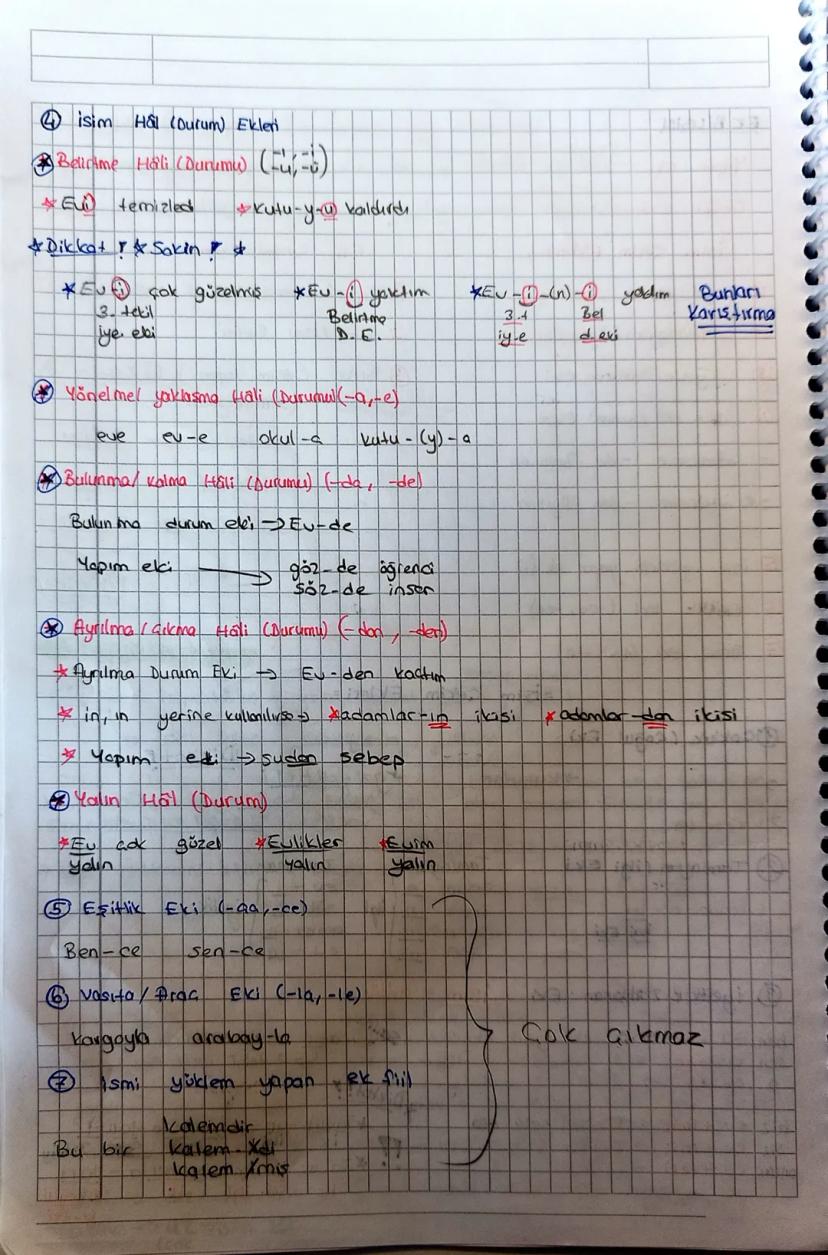 ④ isim Hâl (Durum) Ekleri
* Belirtme Hâli (Durumu) (-ı, -i -u, -ü)
* Evi temizled * Kutu-y-u kaldırdı
* Dikkat ! * Sakin ! *
* Ev-i çok güzelmiş * Ev-i yaktım * Ev-i-(n)-i yaktım Bunları
3. tekil Belirtme 3.t Bel Karıştırma
iye eki D. E. iye d. eki
* Yönelme/ yaklaşma Hâli (Durumu) (-a, -e)
eve ev-e okul-a kutu-(y)-a
* Bulunma/ Kalma Hâli (Durumu) (-da, -de)
Bulunma durum eki → Ev-de
Yapım eki → göz-de öğrenci
söz-de insan
* Ayrılma / Çıkma Hâli (Durumu) (-dan, -den)
* Ayrılma Durum Eki → Ev-den kaçtım
* in, ın yerine kullanılırsa → * adamlar-ın ikisi * adamlar-dan ikisi
* Yapım eki → sudan sebep
* Yalın Hâl (Durum)
* Ev çok güzel * Evlikler * Evim
yalın yalın yalın
⑤ Eşitlik Eki (-ça, -ce)
Ben-ce sen-ce
⑥ Vasıta/ Araç Eki (-la, -le)
kargoyla arabay-la
⑦ İsmi yüklem yapan ek fiil
Çok çıkmaz
kalemdir
Bu bir kalem
kalem